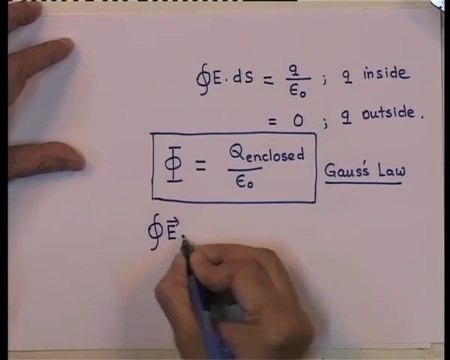 ∮E.dS = q/ε₀ ; q inside
= 0 ; q outside.
Φ = Qenclosed/ε₀ Gauss's Law
∮E⃗.